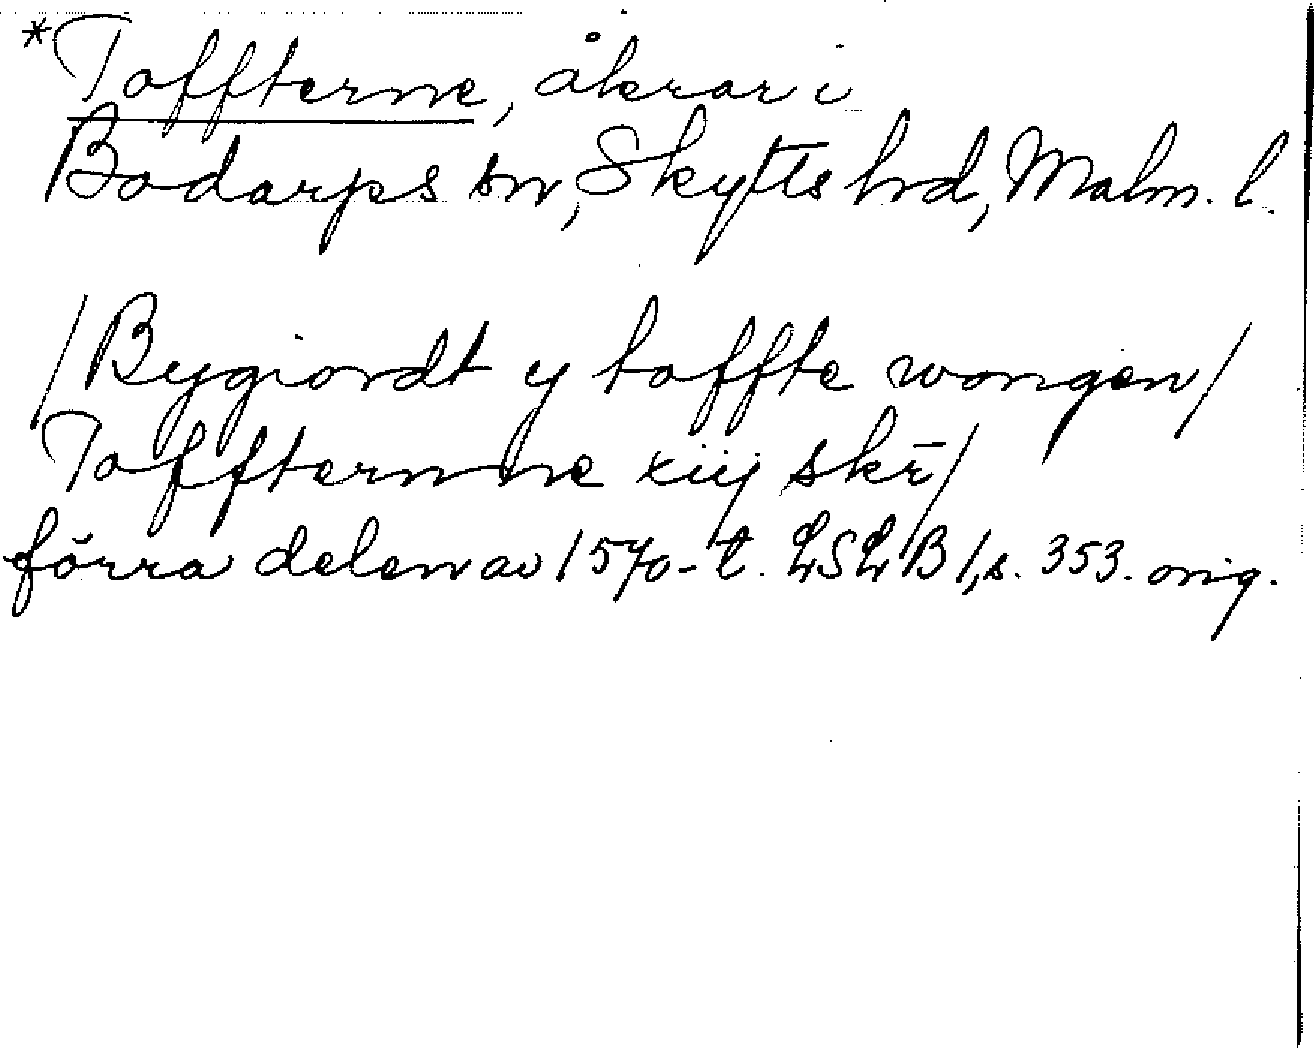 *Toffterne, åkrar i
Bodarps sn, Skytts hrd, Malm. l.
/Bygiordt y toffte wongen/
Toffternne xiij skr̄/
förra delen av 1570-t. LSLB 1, s. 353. orig.